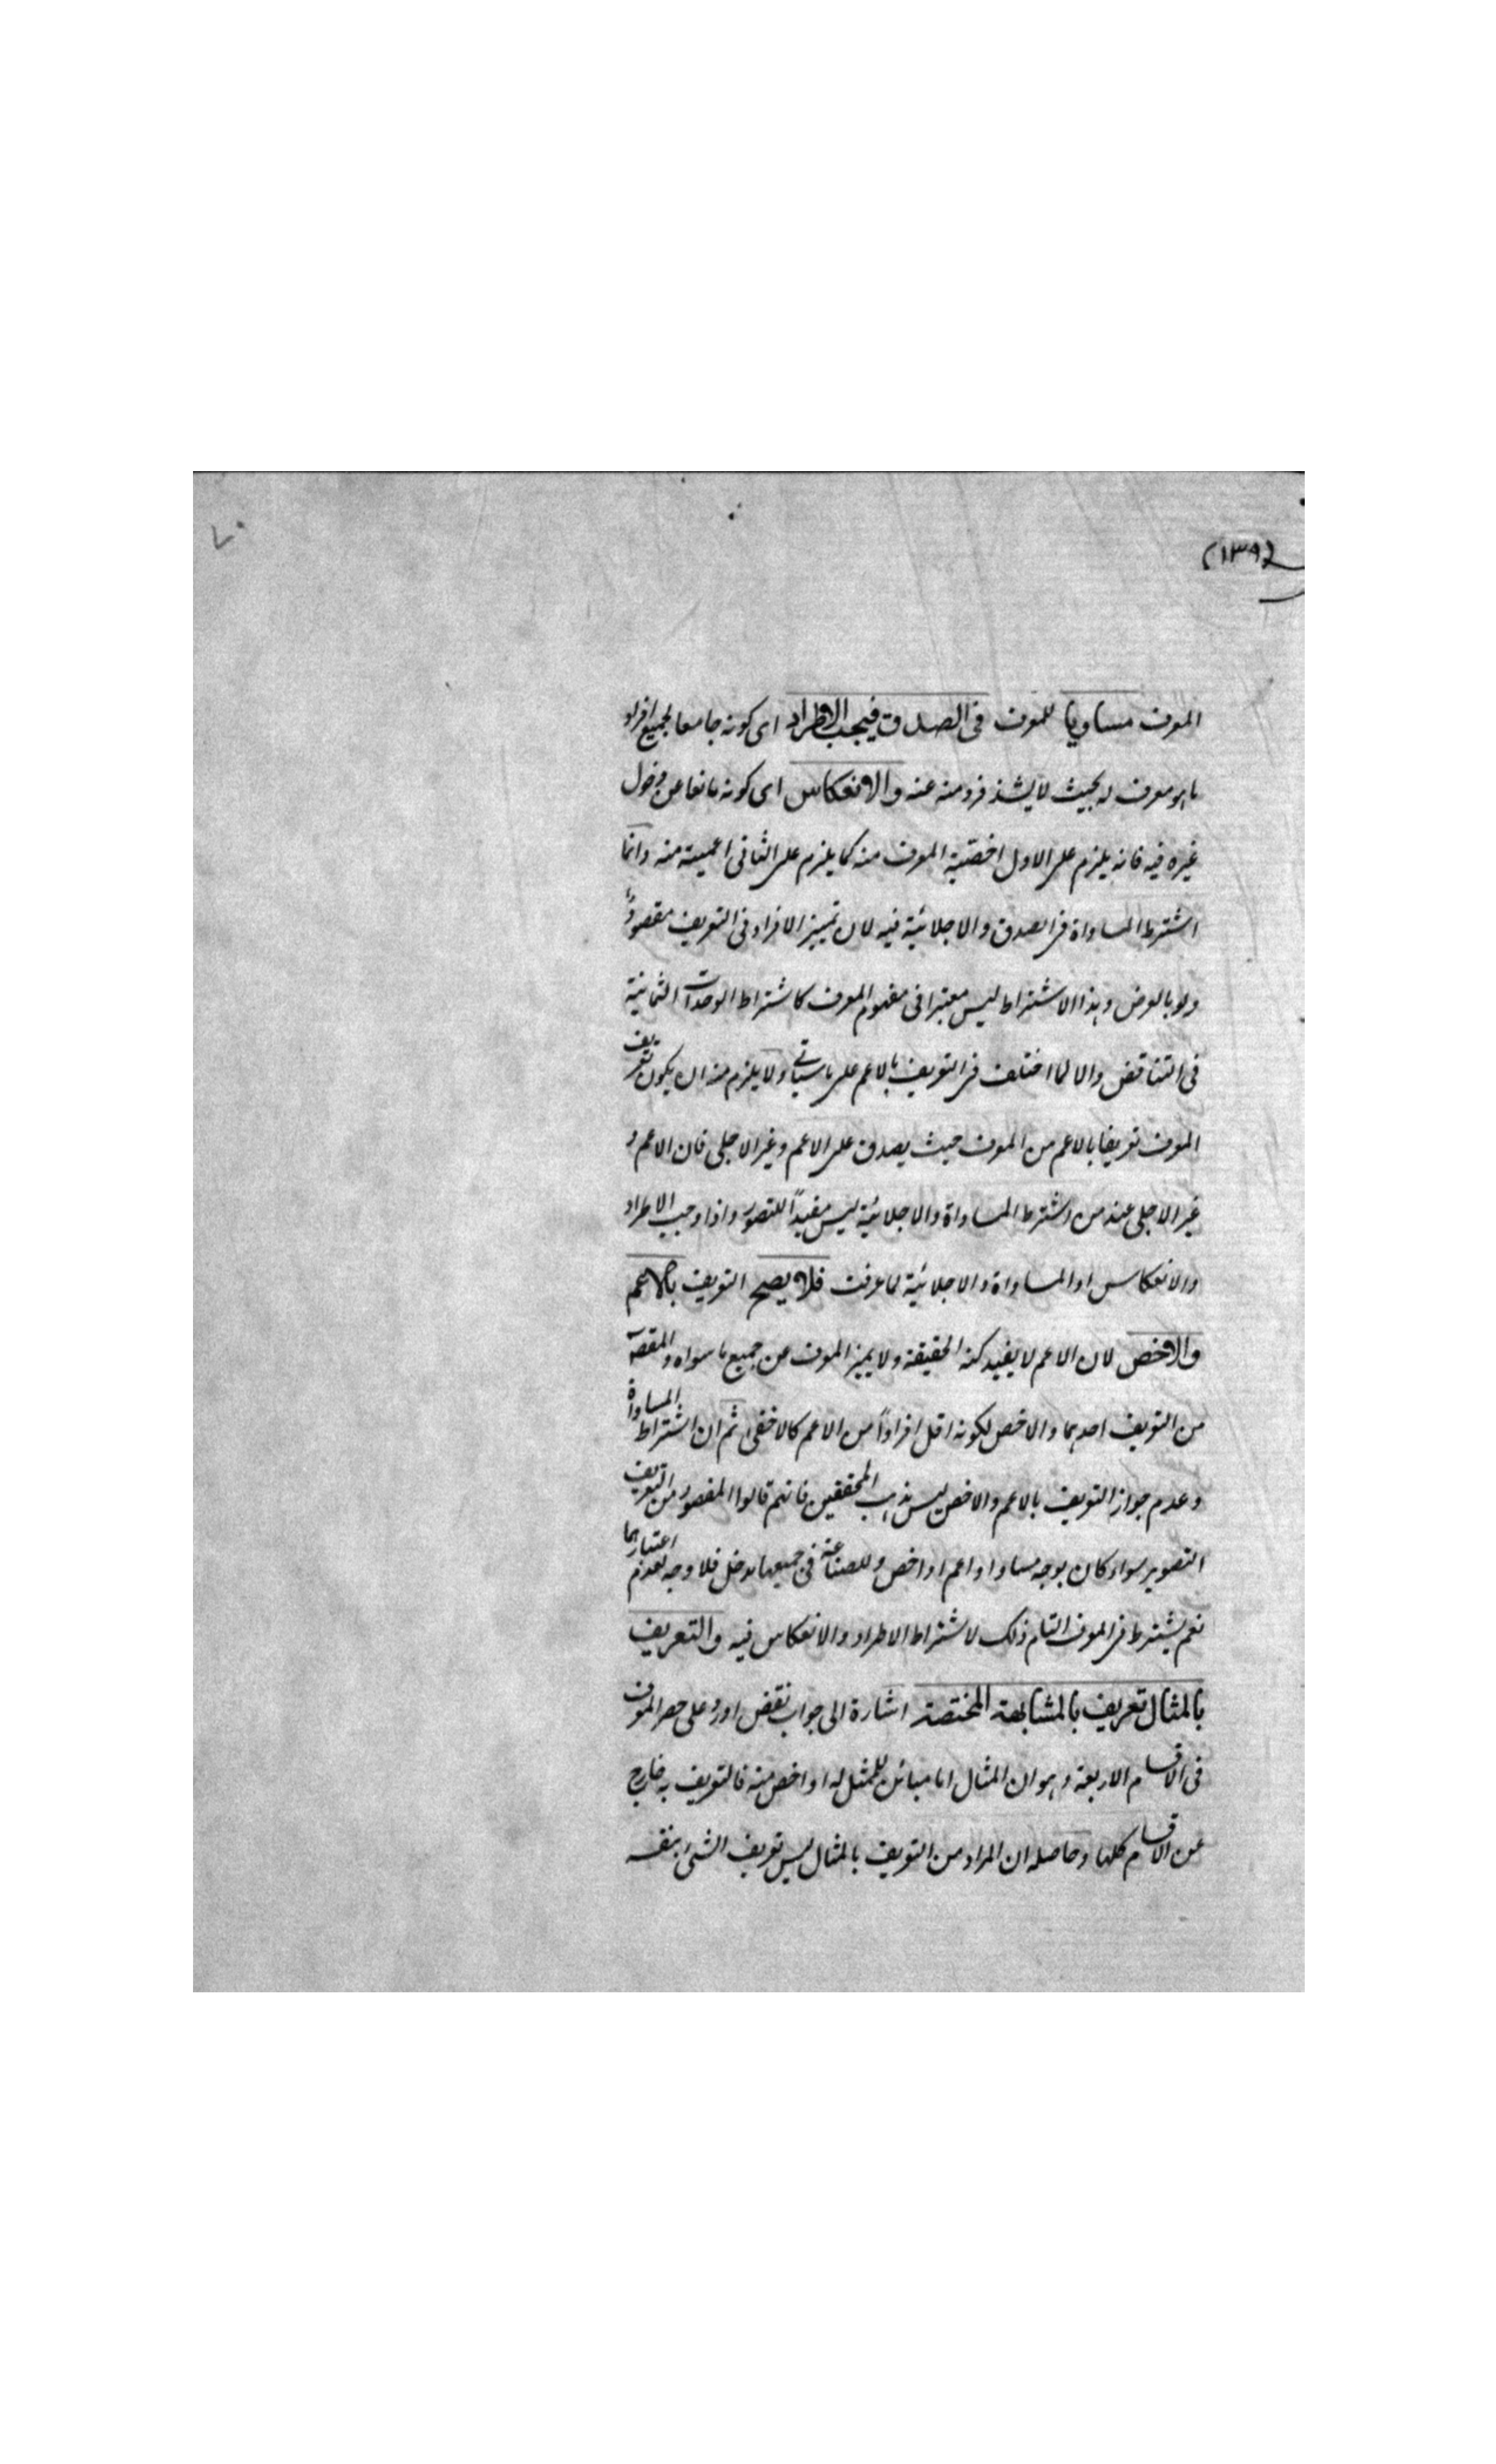 ٧٠
١٣٩
المعرف مساويا للمعرف فى الصدق فيجب الاطراد اى كونه جامعا لجميع افراد
ما هو معرف له بحيث لا يشذ فرد منه عنه والانعكاس اى كونه مانعا عن دخول
غيره فيه فانه يلزم على الاول اخصية المعرف منه كما يلزم على الثانى اعمية منه وانما
اشترط المساواة فى الصدق والاجلائية فيه لان تمييز الافراد فى التعريف مقصود
ولو بالعرض وهذا الاشتراط ليس معتبرا فى مفهوم المعرف كاشتراط الوحدات الثمانية
فى التناقض والا لما اختلف فى التعريف بالاعم على ما سياتى ولا يلزم منه ان يكون تعريف
المعرف تعريفا بالاعم من المعرف حيث يصدق على الاعم وغير الاجلى فان الاعم و
غير الاجلى عند من اشترط المساواة والاجلائية ليس مفيدًا للتصور واذا وجب الاطراد
والانعكاس او المساواة والاجلائية لما عرفت فلا يصح التعريف بالاعم
والاخص لان الاعم لا يفيد كنه الحقيقة ولا يميز المعرف عن جميع ما سواه والمقصود
من التعريف احدهما والاخص لكونه اقل افرادًا من الاعم كالاخفى ثم ان اشتراط المساواة
وعدم جواز التعريف بالاعم والاخص ليس مذهب المحققين فانهم قالوا المقصود من التعريف
التصوير سواء كان بوجه مساو او اعم او اخص وللصناعة فى جميعها مدخل فلا وجه لعدم اعتبارهما
نعم يشترط فى المعرف التام ذلك لاشتراط الاطراد والانعكاس فيه والتعريف
بالمثال تعريف بالمشابهة المختصة اشارة الى جواب نقض اورد على حصر المعرف
فى الاقسام الاربعة وهو ان المثال اما مبائن للمثل له او اخص منه فالتعريف به خارج
عن الاقسام كلها وحاصله ان المراد من التعريف بالمثال ليس تعريف الشئ بنفسه